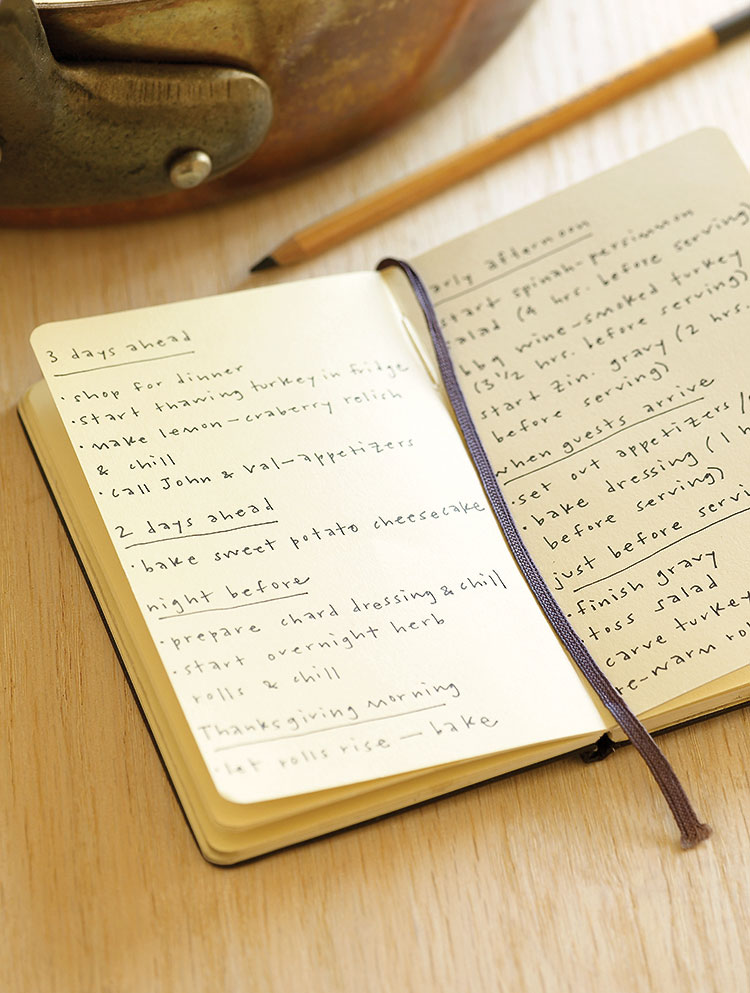 3 days ahead
· shop for dinner
· start thawing turkey in fridge
· make lemon-craberry relish
& chill
· call John & val-appetizers
2 days ahead
· bake sweet potato cheesecake
night before
· prepare chard dressing & chill
· start overnight herb
rolls & chill
Thanksgiving Morning
· let rolls rise - bake
arly afternoon
start spinah-persimmon
alad (4 hrs. before serving)
bbq wine-smoked turkey
(3 1/2 hrs. before serving)
start zin. gravy (2 hrs.
before serving)
when guests arrive
· set out appetizers/
· bake dressing (1 h
before serving)
just before servi
· finish gravy
· toss salad
carve turkey
re-warm rol